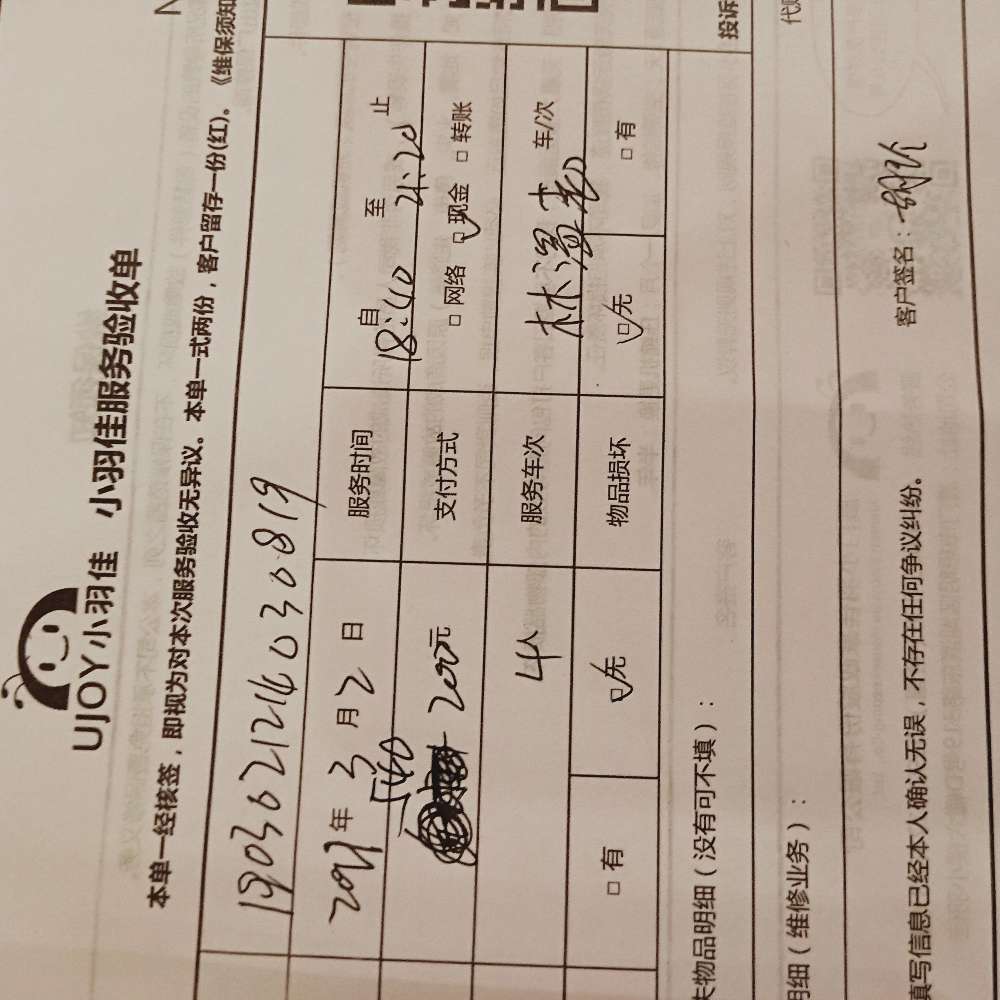 UJOY小羽佳 小羽佳服务验收单
本单一经核签，即视为对本次服务验收无异议。本单一式两份，客户留存一份(红)。《维保须知
年3月2日 服务时间 自18:40至21:20止
540 2000元 支付方式 □网络 ☑现金 □转账
4人 服务车次 车/次
□有 ☑无 物品损坏 ☑无 □有
失物品明细（没有可不填）：
投诉
明细（维修业务）：
填写信息已经本人确认无误，不存在任何争议纠纷。 客户签名：